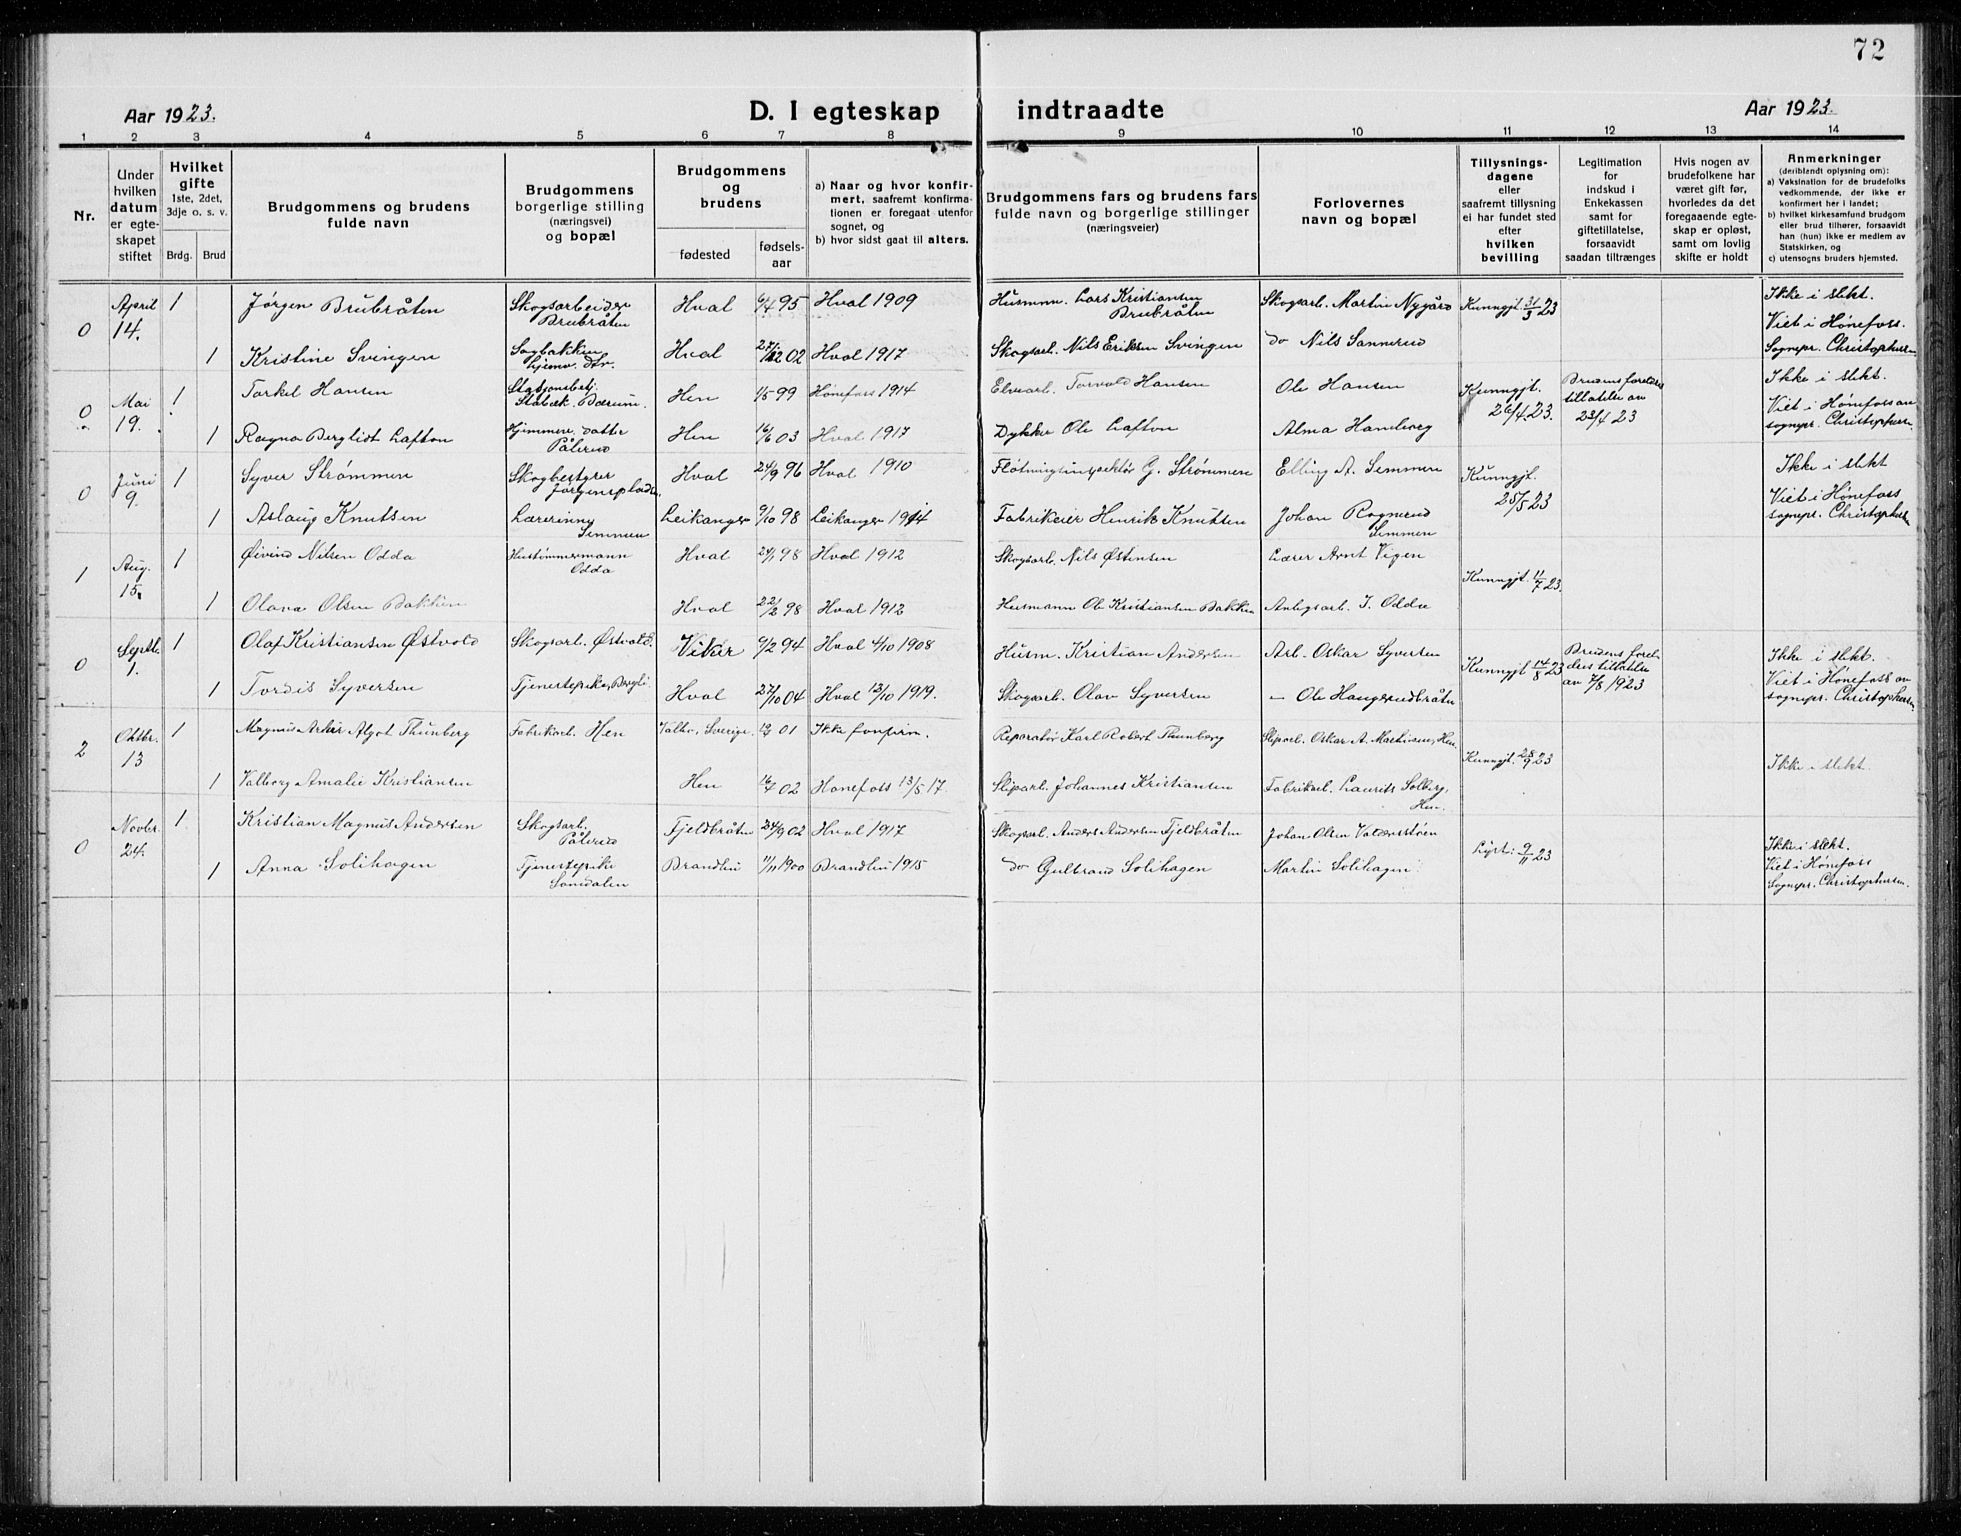 72
Aar 1923.
D. I egteskap indtraadte
Aar 1923.
1 2 3 4 5 6 7 8 9 10 11 12 13 14
Nr.
Under hvilken datum er egte-skapet stiftet
Hvilket gifte 1ste, 2det, 3dje o. s. v.
Brdg. Brud
Brudgommens og brudens fulde navn
Brudgommens borgerlige stilling (næringsvei) og bopæl
Brudgommens og brudens
fødested
fødsels-aar
a) Naar og hvor konfir-mert, saafremt konfirma-tionen er foregaat utenfor sognet, og
b) hvor sidst gaat til alters.
Brudgommens fars og brudens fars fulde navn og borgerlige stillinger (næringsveier)
Forlovernes navn og bopæl
Tillysnings-dagene eller saafremt tillysning ei har fundet sted efter hvilken bevilling
Legitimation for indskud i Enkekassen samt for giftetillatelse, forsaavidt saadan tiltrænges
Hvis nogen av brudefolkene har været gift før, hvorledes da det foregaaende egte-skap er opløst, samt om lovlig skifte er holdt
Anmerkninger (deriblandt oplysning om):
a) Vaksination for de brudefolks vedkommende, der ikke er konfirmert her i landet;
b) hvilket kirkesamfund brudgom eller brud tilhører, forsaavidt han (hun) ikke er medlem av Statskirken, og
c) utensogns bruders hjemsted.
0 April 14. 1 Jørgen Brubråten Skogsarbeider Brubråten Hval 6/4 95 Hval 1909 Husmnn. Lars Kristiansen Brubråten Skogsarb. Martin Nygård Kunngjt. 31/3 23 Ikke i slekt. Viet i Hønefoss. Sognepr. Christophersen
1 Kristine Svingen Sagbakken hjemv. dtr. Hval 02 Hval 1917 Skogsarb. Nils Eriksen Svingen do Nils Sannerud
0 Mai 19. 1 Torkel Hansen Stabæk. Bærum. Hen 1/5 99 Hønefoss 1914 Elvearb. Torvald Hansen Ole Hansen Kunngjt. 26/4.23. Brudens foreldres tillatelse av 23/4 23 Ikke i slekt. Viet i Hønefoss av sognepr. Christophersen.
1 Ragna Bergliot Lafton Hjemmev. datter Pålerud Hen 16/6 03 Hval 1917 Dykker Ole Lafton Alma Hamborg
0 Juni 9. 1 Syver Strømmen Skogbestyrer Jørgensplads Hval 24/9 96 Hval 1910 Fløtningsinspektør G. Strømmen Elling A. Semmen Kunngjt. 25/5 23 Ikke i slekt Viet i Hønefoss sognepr. Christophersen
1 Aslaug Knutsen Lærerinne Semmen Leikanger 9/10 98 Leikanger 1914 Fabrikeier Henrik Knutsen Johan Rognerud Semmen
1 Aug. 15. 1 Øivind Nilsen Odda Hustømmermann Odda Hval 24/1 98 Hval 1912 Skogsarb. Nils Østensen Lærer Arnt Vigen Kunngjt. 11/7 23.
1 Olava Olsen Bakken Hval 22/2 98 Hval 1912 Husmann Ole Kristiansen Bakken Anlegsarb. I. Odda
0 Septbr. 1. 1 Olaf Kristiansen Østvold Skogsarb. Østvold. Viker 9/2 94 Hval 4/10 1908 Husm. Kristian Andersen Arb. Oskar Syversen Kunngjt 14/8 23 Brudens forel-dres tillatelse av 7/8 1923 Ikke i slekt. Viet i Hønefoss av sognepr. Christophersen
1 Tordis Syversen Tjenestepike, Bergli Hval 27/10 04 Hval 12/10 1919. Skogsarb. Olav Syversen — Ole Haugerudbråten
2 Oktbr. 13 1 Magnus Artur Algot Thunberg Fabrikarb. Hen Sverige. 01 Ikke konfirm. Reparatør Karl Robert Thunberg Sliparb. Oskar A. Martinsen, Hen. Kunngjt. 28/9 23 Ikke i slekt.
1 Valborg Amalie Kristiansen Hen 16/7 02 Hønefoss 13/5 17. Sliparb. Johannes Kristiansen Fabrikarb. Laurits Solberg, Hen.
0 Novbr. 24. 1 Kristian Magnus Andersen Skogsarb. Pålerud Fjeldbråten 24/9 02 Hval 1917 Skogsarb. Anders Andersen Fjeldbråten Johan Olsen Lyst: 9/11 23 Ikke i slekt. Viet i Hønefoss Sognepr. Christophersen.
1 Anna Solihagen Tjenestepike Somdalen Brandbu 11/11 1900 Brandbu 1915 do Gulbrand Solihagen Martin Solihagen